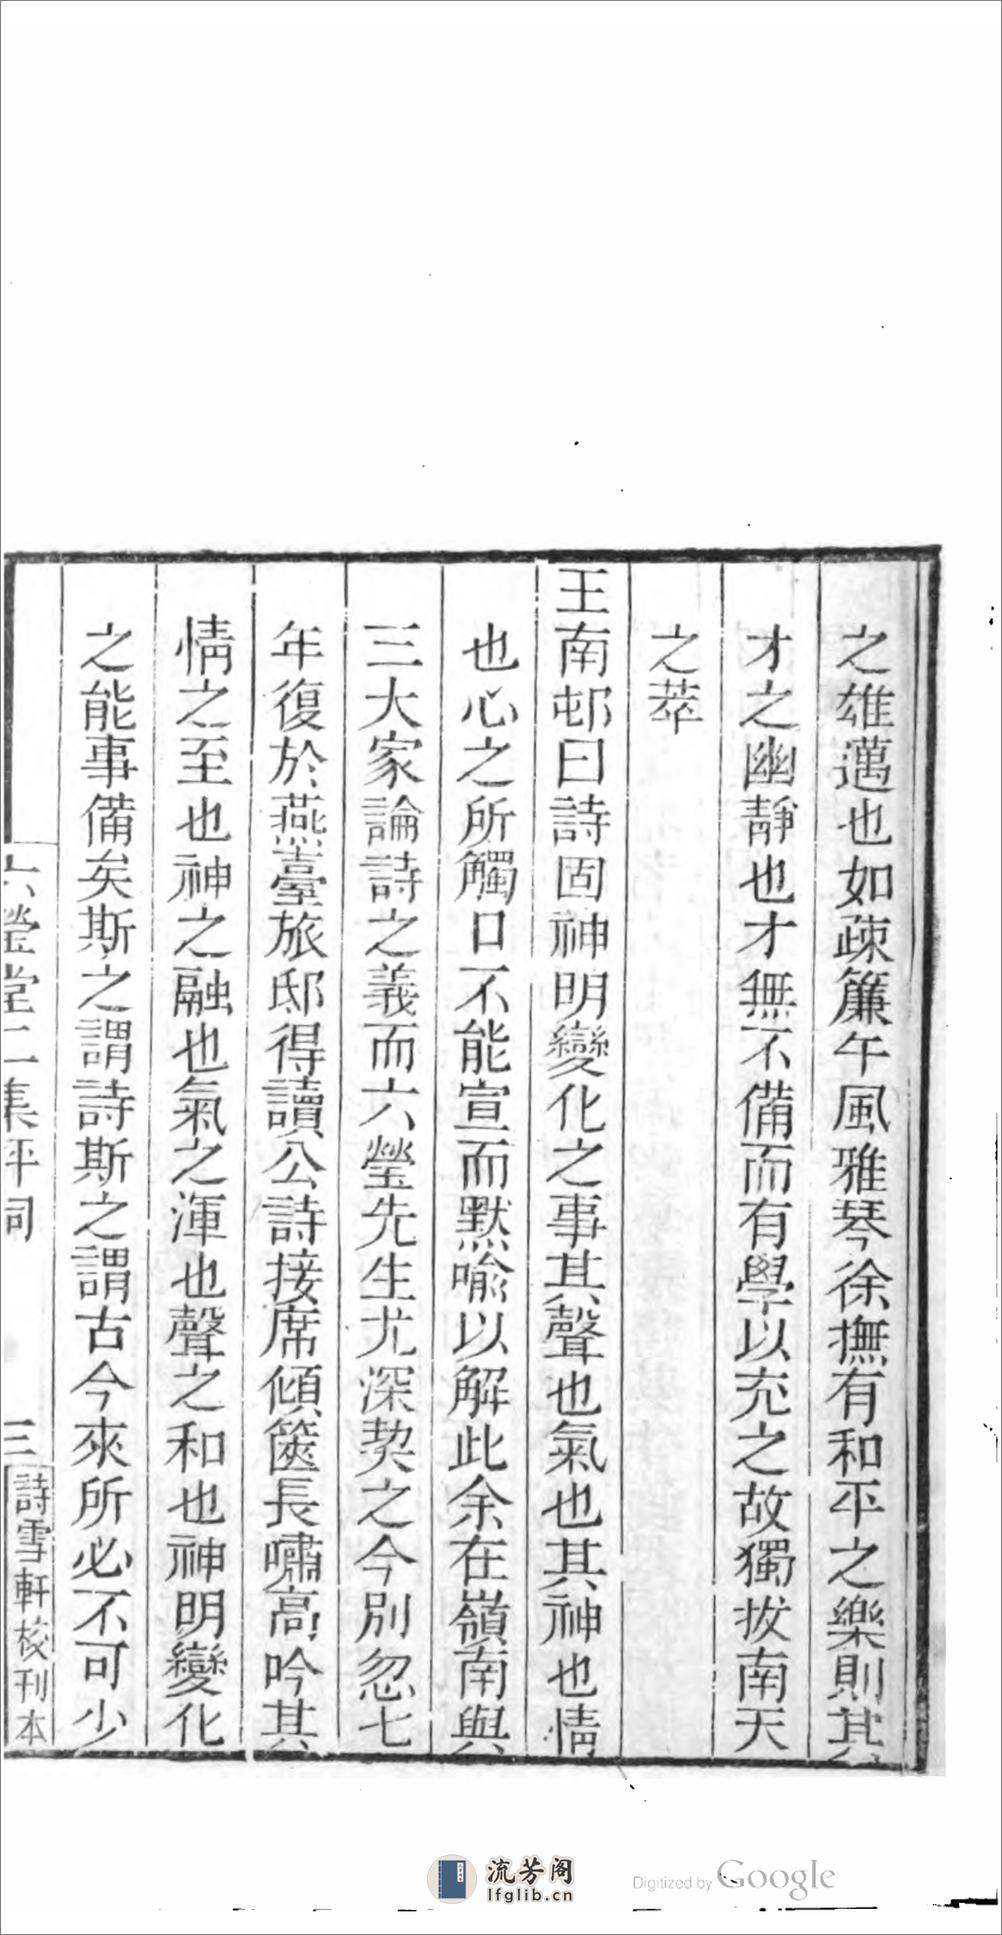 之雄邁也如疎簾午風雅琴徐撫有和平之樂則其
才之幽靜也才無不備而有學以充之故獨拔南天
之萃
王南邨曰詩固神明變化之事其聲也氣也其神也情
也心之所觸口不能宣而默喻以解此余在嶺南與
三大家論詩之義而六瑩先生尤深契之今別忽七
年復於燕臺旅邸得讀公詩接席傾篋長嘯高吟其
情之至也神之融也氣之渾也聲之和也神明變化
之能事備矣斯之謂詩斯之謂古今來所必不可少
六瑩堂二集評詞
三
詩雪軒校刊本
流芳阁
lfglib.cn
Digitized by Google